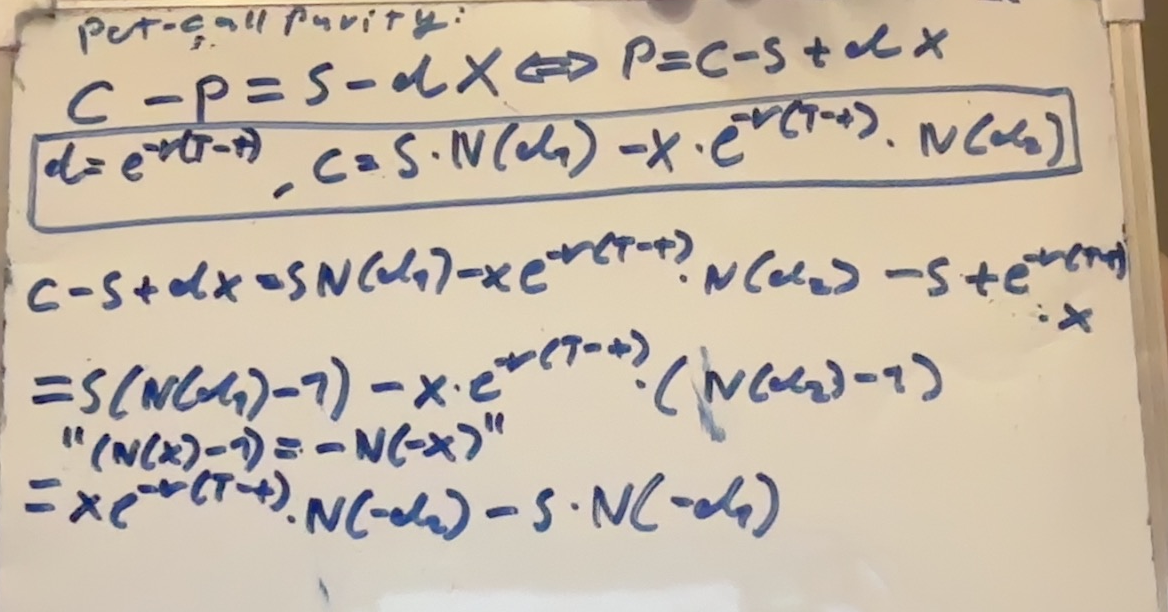 Put-call Parity:
C - P = S - dX ⇔ P = C - S + dX
d = e^{-r(T-t)}, C = S·N(d₁) - X·e^{-r(T-t)}·N(d₂)
C - S + dX = SN(d₁) - Xe^{-r(T-t)}·N(d₂) - S + e^{-r(T-t)}
·X
= S(N(d₁) - 1) - X·e^{-r(T-t)}·(N(d₂) - 1)
"(N(x) - 1) = -N(-x)"
= Xe^{-r(T-t)}·N(-d₂) - S·N(-d₁)